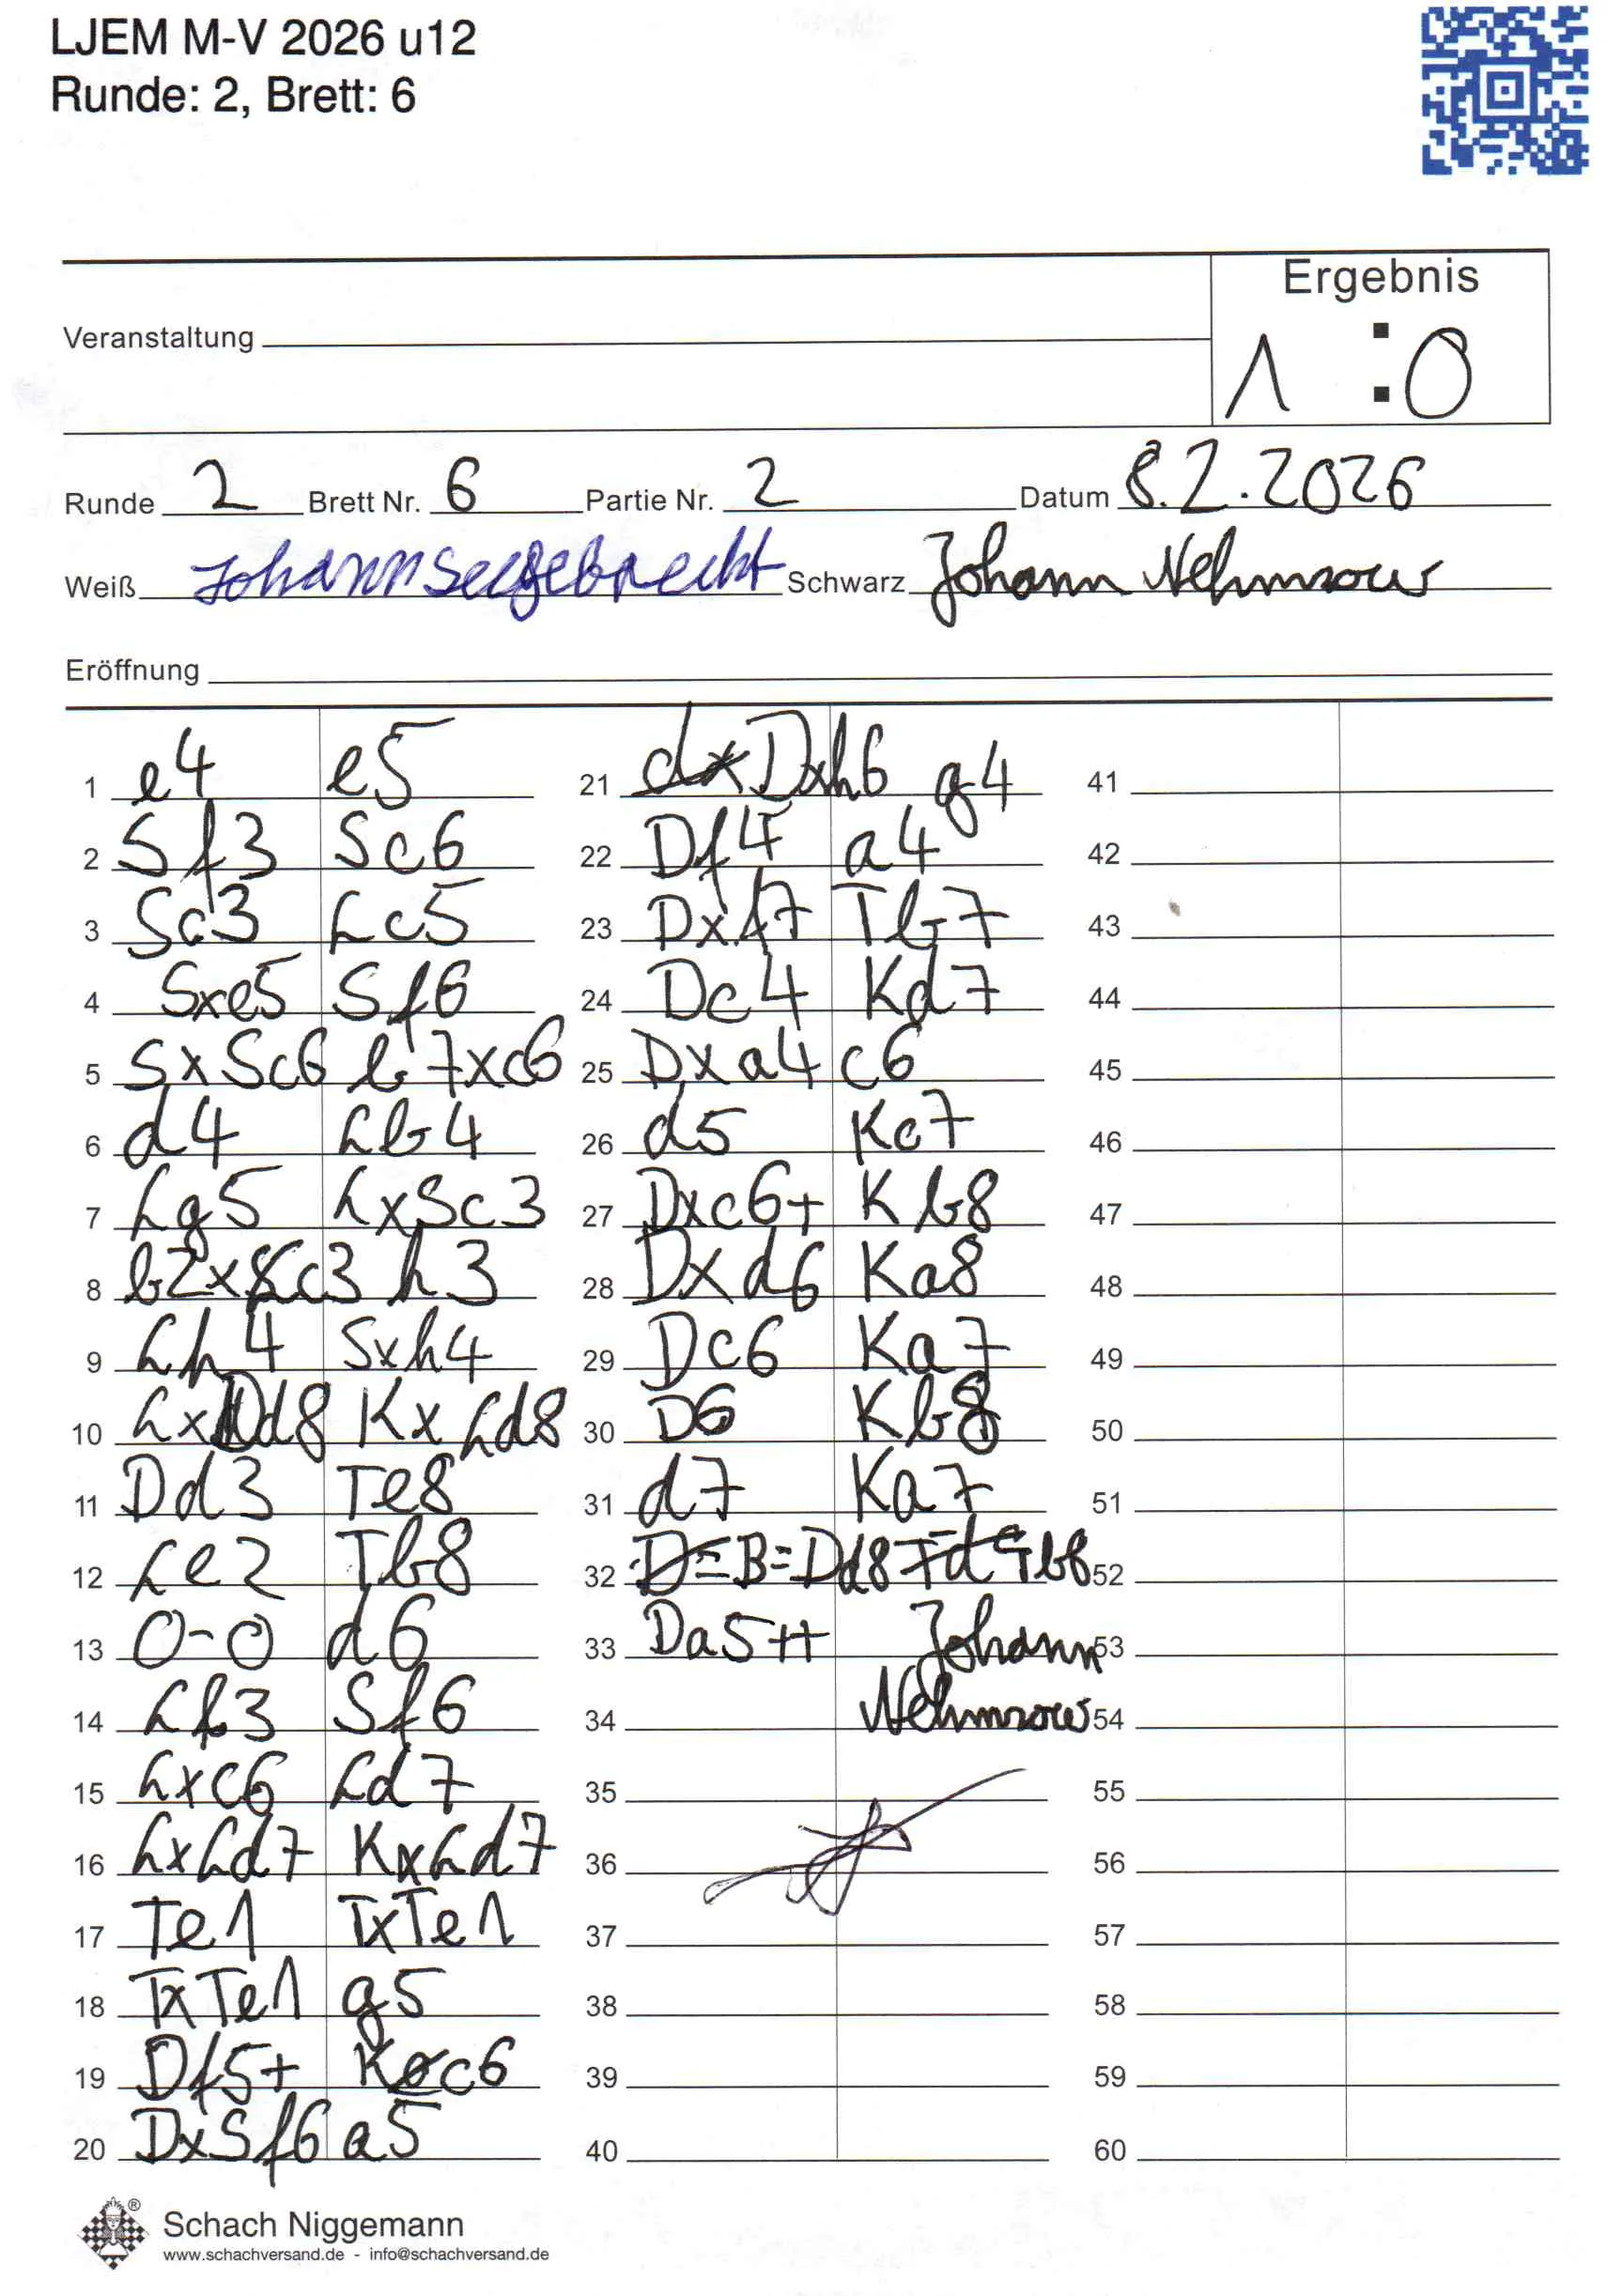 LJEM M-V 2026 u12
Runde: 2, Brett: 6
Ergebnis
Veranstaltung
1 : 0
Runde 2 Brett Nr. 6 Partie Nr. 2 Datum 8.2.2026
Weiß Johann Seegebrecht Schwarz Johann Nehmzow
Eröffnung
1 e4 e5
2 Sf3 Sc6
3 Sc3 Lc5
4 Sxe5 Sf6
5 SxSc6 b7xc6
6 d4 Lb4
7 Lg5 LxSc3
8 b2xLc3 h3
9 Lh4 Sxh4
10 LxDd8 KxLd8
11 Dd3 Te8
12 Le2 Tb8
13 0-0 d6
14 Lf3 Sf6
15 Lxc6 Ld7
16 LxLd7 KxLd7
17 Te1 TxTe1
18 TxTe1 g5
19 Df5+ Kc6
20 DxSf6 a5
21 Dxh6 g4
22 Df4 a4
23 Dxf7 Tb7
24 Dc4 Kd7
25 Dxa4 c6
26 d5 Kc7
27 Dxc6+ Kb8
28 Dxd6 Ka8
29 Dc6 Ka7
30 D6 Kb8
31 d7 Ka7
32 B=Dd8 Tb6
33 Da5++ Johann
34 Nehmzow
35
36
37
38
39
40
41
42
43
44
45
46
47
48
49
50
51
52
53
54
55
56
57
58
59
60
® Schach Niggemann
www.schachversand.de - info@schachversand.de